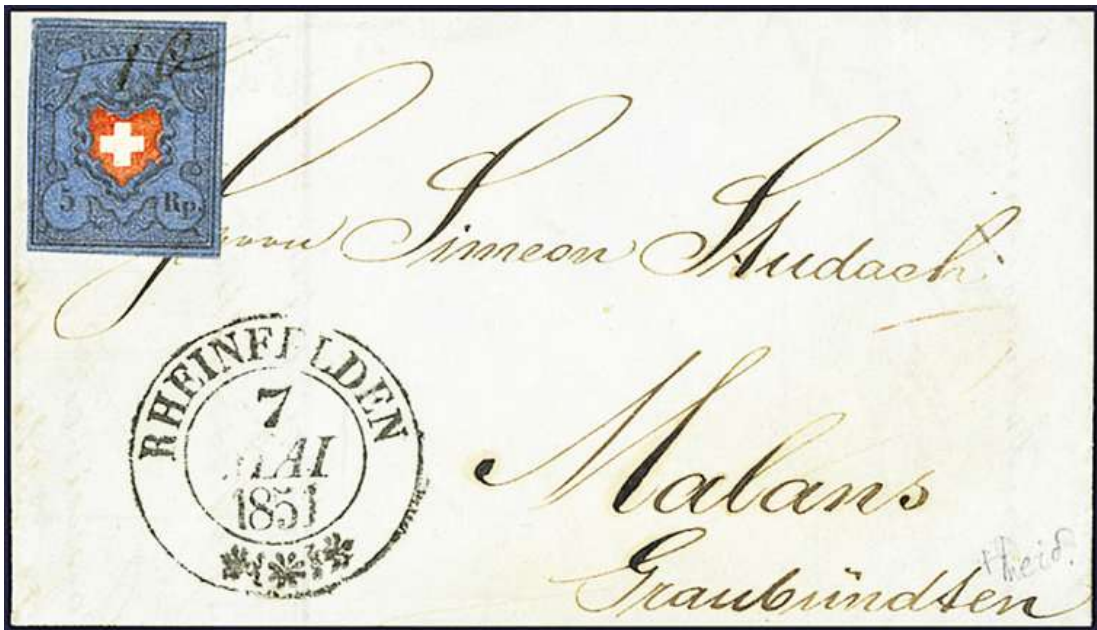 RAYON I
5 Rp.
Herrn Simeon Studach
RHEINFELDEN
7
MAI
1851
Malans
Graubündten